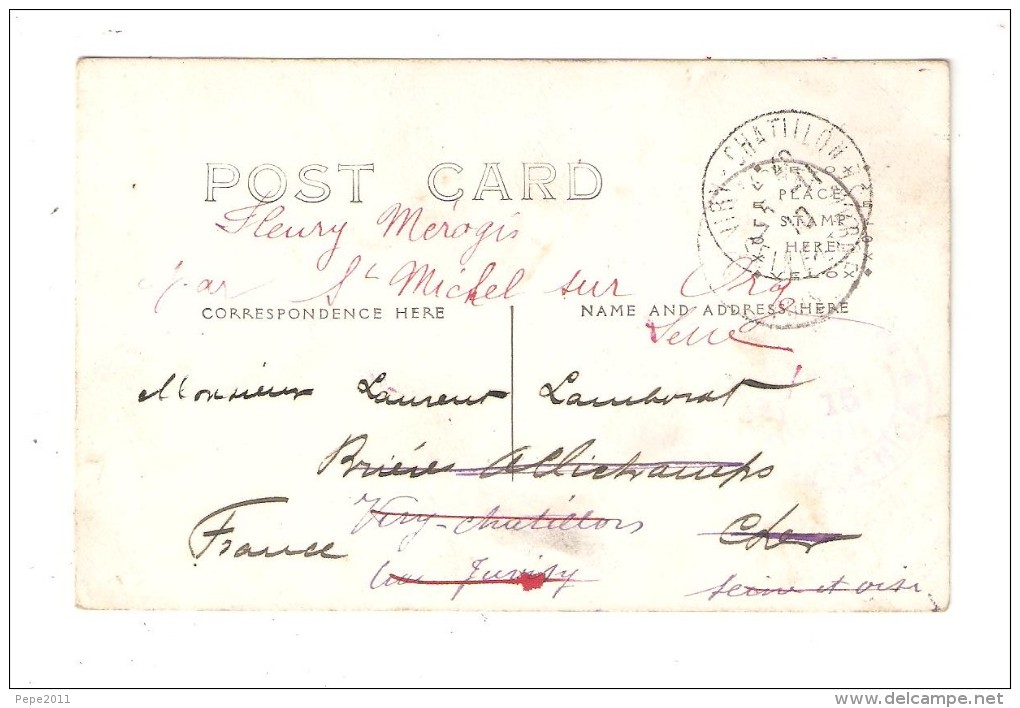 POST CARD
VIRY-CHATILLON
PLACE
STAMP
HERE
VELOX
Fleury Mérogis
par St Michel sur Org
CORRESPONDENCE HERE
NAME AND ADDRESS HERE
Monsieur Laurent Lamborat
15
Brière Allichamps
Viry-chatillon
Cher
France
Juvisy
Seine et oise
Pepe2011
www.delcampe.net